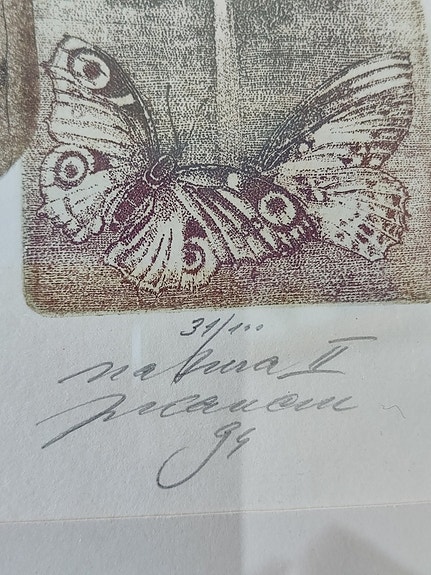 31/100
natura II
94